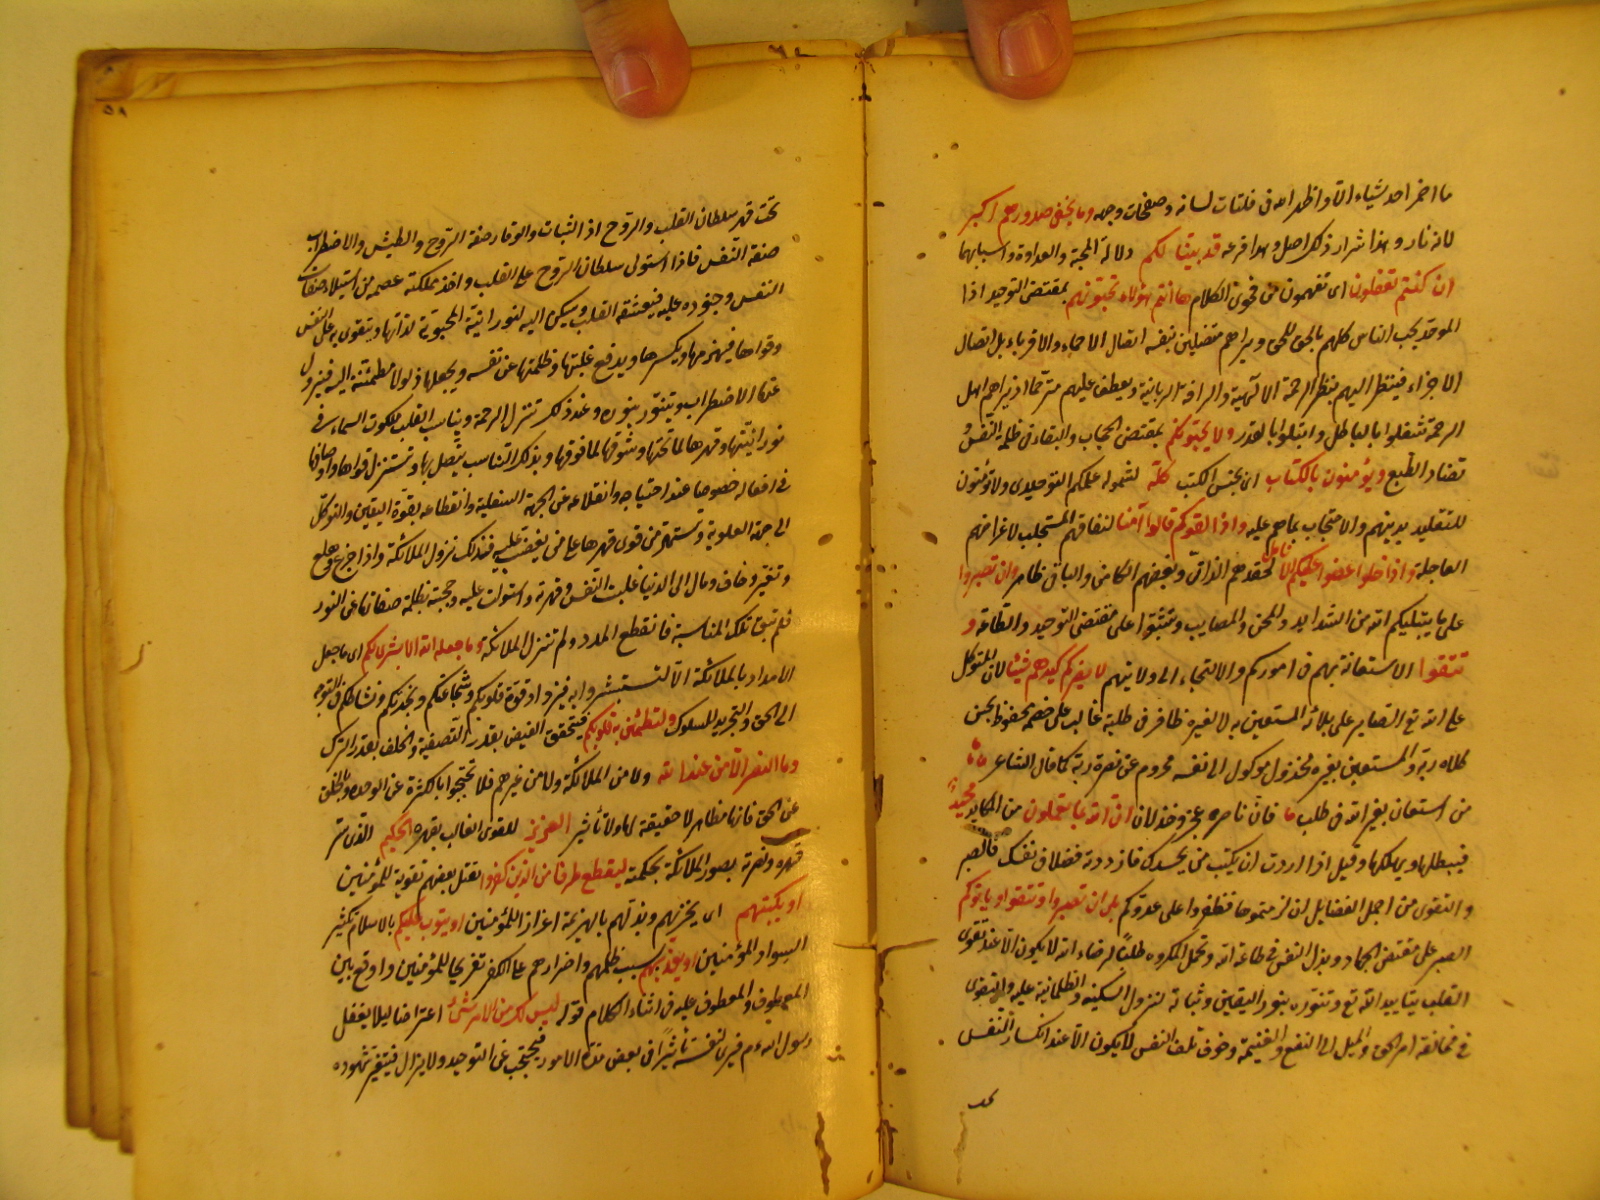 ما اضمر احد شيئاء الا واظهر الله فى فلتات لسانه وصفحات وجهه وما تخفى صدورهم اكبر
لانه نار وهذا شرار ذلك اصل وهذا فرعه قد بينا لكم دلالة المحبة والعداوة واسبابهما
ان كنتم تعقلون اى تفهمون من فحوى الكلام ها انتم هؤلاء تحبونهم بمقتضى التوحيد اذا
الموحد يحب الناس كلهم بالحق للحق ويراهم متصلين بنفسه اتصال الاحباء والاقرباء بل اتصال
الاجزاء فينظر اليهم بنظر الرحمة الالهية والرافة الربانية ويعطف عليهم مترحما اذ يراهم اهل
الرحمة شغلوا بالباطل وابتلوا بالقدر ولا يحبونكم بمقتضى الحجاب والبقاء فى ظلمة النفس و
تضاد الطبع ويؤمنون بالكتاب اى بجنس الكتب كله لشمول علمكم التوحيدى ولا يؤمنون
للتقليد بدينهم والاحتجاب بما هم عليه واذا لقوكم قالوا آمنا لنفاقهم المستجلب لاغراضهم
العاجلة واذا خلوا عضوا عليكم الانامل لحقدهم الذاتى وبغضهم الكامن والباقى ظاهر وان تصبروا
على ما يبتليكم الله من الشدايد والمحن والمصايب وتثبتوا على مقتضى التوحيد والطاعة و
تتقوا الاستعانة بهم فى اموركم والالتجاء الى ولايتهم لا يضركم كيدهم شيئا لان المتوكل
على الله تع الصابر على بلائه المستعين به لا بغيره ظافر فى طلبة غالب على خصمه محفوظ بحسن
كلاءة ربه والمستعين بغيره مخذول موكول الى نفسه محروم عن نصرة ربه كما قال الشاعر
من استعان بغير الله فى طلب فان ناصره عجز وخذلان ان الله بما يعملون من المكايد محيط
فيبطلها ويهلكها وقيل اذا اردت ان يكبت من يحسدك فازدد فضلا فى نفسك فالصبر
والتقوى من اجمل الفضايل ان لزمتموها تظفروا على عدوكم بلى ان تصبروا وتتقوا وياتوكم
الصبر على مقتضى الجهاد وبذل النفس فى طاعة الله وتحمل المكروه طلبا لرضاء الله لا يكون الا عند تقوى
القلب بتاييد الله تع وتنوره بنور اليقين وثباته لنزول السكينة والطمانية عليه والتقوى
فى مخالفة امر الحق والميل الى النفع والغنيمة وخوف تلف النفس لا يكون الا عند انكسار النفس
٥٨
تحت قهر سلطان القلب والروح اذ الثبات والوقار صفة الروح والطيش والاضطراب
صفة النفس فاذا استولى سلطان الروح على القلب واخذ مملكته عصمه من استيلاء صفات
النفس وجنوده عليه فيعشقه القلب ويسكن اليه لنورانيته المحبوبة لذاتها ويتقوى به على النفس
وقواها فيهزمها ويكسرها ويدفع غلبتها وظلمتها عن نفسه ويجعلها ذلولا مطمئنة اليه فيزول
عنها الاضطراب ويتنور بنوره وعند ذلك تتنزل الرحمة ويناسب القلب ملكوت السماء فى
نورانيتها وقهرها لما تحتها وشوقها لما فوقها وبذلك التناسب يتصل بها وتستنزل قواها واوصافها
فى افعاله خصوصا عند احتياجه وانقلاعه عن الجهة السفلية وانقطاعه بقوة اليقين والتوكل
الى جهة العلوية ويستمد من قوى قهرها على من يغضب عليه فبذلك نزول الملائكة واذا جزع وهلع
وتغير وخاف ومال الى الدنيا غلبت النفس وقهرته واستولت عليه وحجبته بظلمة صفاتها عن النور
فلم تبق تلك المناسبة فانقطع المدد ولم تتنزل الملائكة وما جعله الله الا بشرى لكم اى ما جعل
الامداد بالملائكة الا لتستبشروا به فيزداد قوة قلوبكم وشجاعتكم ونجدتكم ونشاطكم فى التوجه
الى الحق والتجريد للسلوك ولتطمئن به قلوبكم فيتحقق الفيض بقدر التصفية والخلف بقدر الترك
وما النصر الا من عند الله ولا من الملائكة ولا من غيرهم فلا تحتجبوا بالكثرة عن الوحدة وبالخلق
عن الحق فانها مظاهر لا حقيقة لها ولا تأثير العزيز للقوى الغالب بقهره الحكيم الذى ستر
قهره ونصرته بصور الملائكة بحكمته ليقطع طرفا من الذين كفروا بقتل بعضهم تقوية للمؤمنين
او يكبتهم اى يخزيهم ويذلهم بالهزيمة اعزاز للمؤمنين او يتوب عليهم بالاسلام تكثير
السواد المؤمنين او يعذبهم بسبب ظلمهم واصرارهم على الكفر تفريحا للمؤمنين واوقع بين
المعطوف والمعطوف عليه فى اثناء الكلام قوله ليس لك من الامر شئ اعتراضا ليلا يغفل
رسول الله ءم فيرى لنفسه تأثيرا فى بعض هذه الامور فيحتجب عن التوحيد ولا يزال فيتغير شهوده